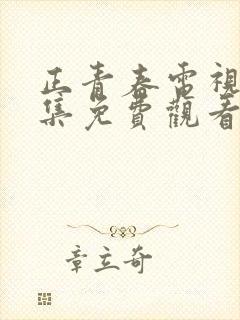 正青春電視
集免費觀看
章立奇